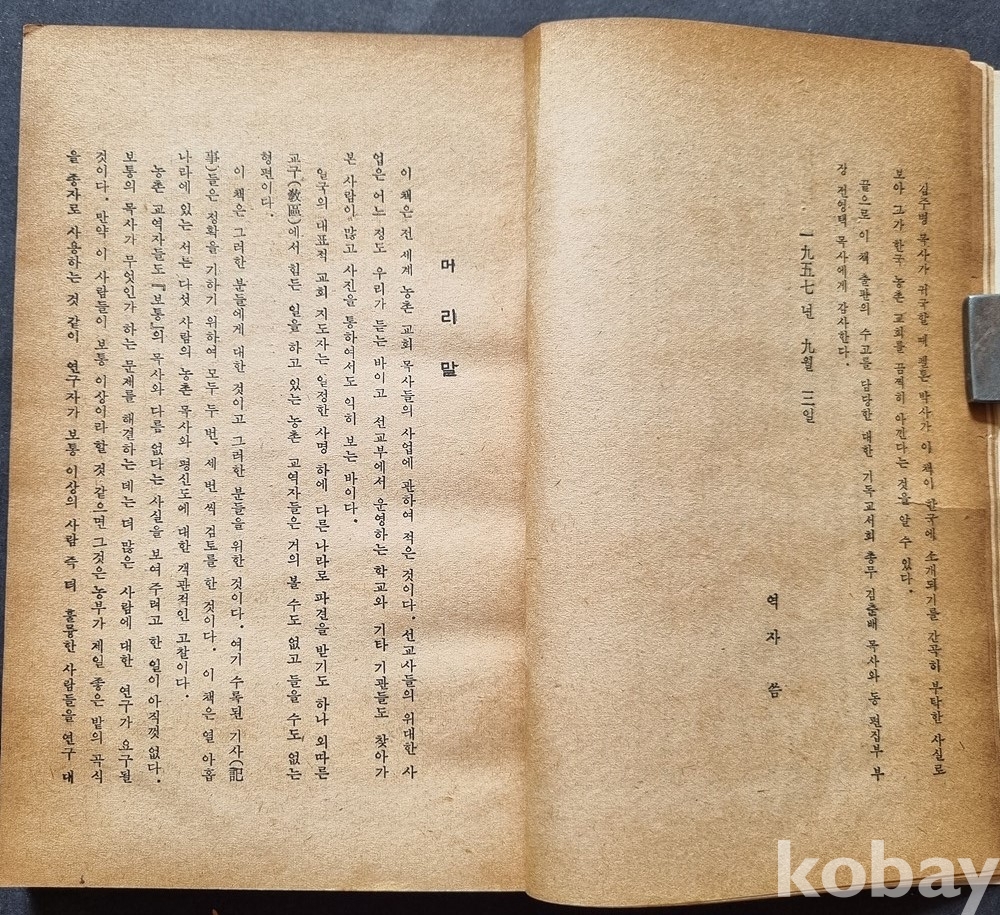 김주병 목사가 귀국할 때 펠톤 박사가 이 책이 한국에 소개되기를 간곡히 부탁한 사실로
보아 그가 한국 농촌 교회를 끔찍히 아낀다는 것을 알 수 있다.
끝으로 이 책 출판의 수고를 담당한 대한 기독교서회 총무 김춘배 목사와 동 편집부 부
장 전영택 목사에게 감사한다.
一九五七년 九월 三일
역 자 씀
머 리 말
이 책은 전 세계 농촌 교회 목사들의 사업에 관하여 적은 것이다. 선교사들의 위대한 사
업은 어느 정도 우리가 듣는 바이고 선교부에서 운영하는 학교와 기타 기관들도 찾아가
본 사람이 많고 사진을 통하여서도 익히 보는 바이다.
일국의 대표적 교회 지도자는 일정한 사명 하에 다른 나라로 파견을 받기도 하나 외따른
교구(敎區)에서 힘든 일을 하고 있는 농촌 교역자들은 거의 볼 수도 없고 들을 수도 없는
형편이다.
이 책은 그러한 분들에게 대한 것이고 그러한 분들을 위한 것이다. 여기 수록된 기사(記
事)들은 정확을 기하기 위하여 모두 두 번, 세 번 씩 검토를 한 것이다. 이 책은 열 아홉
나라에 있는 서른 다섯 사람의 농촌 목사와 평신도에 대한 객관적인 고찰이다.
농촌 교역자들도 『보통』의 목사와 다름 없다는 사실을 보여 주려고 한 일이 아직껏 없다.
보통의 목사가 무엇인가 하는 문제를 해결하는 데는 더 많은 사람에 대한 연구가 요구될
것이다. 만약 이 사람들이 보통 이상이라 할 것 같으면 그것은 농부가 제일 좋은 밭의 곡식
을 종자로 사용하는 것 같이 연구자가 보통 이상의 사람 즉 더 훌륭한 사람들을 연구 대
kobay